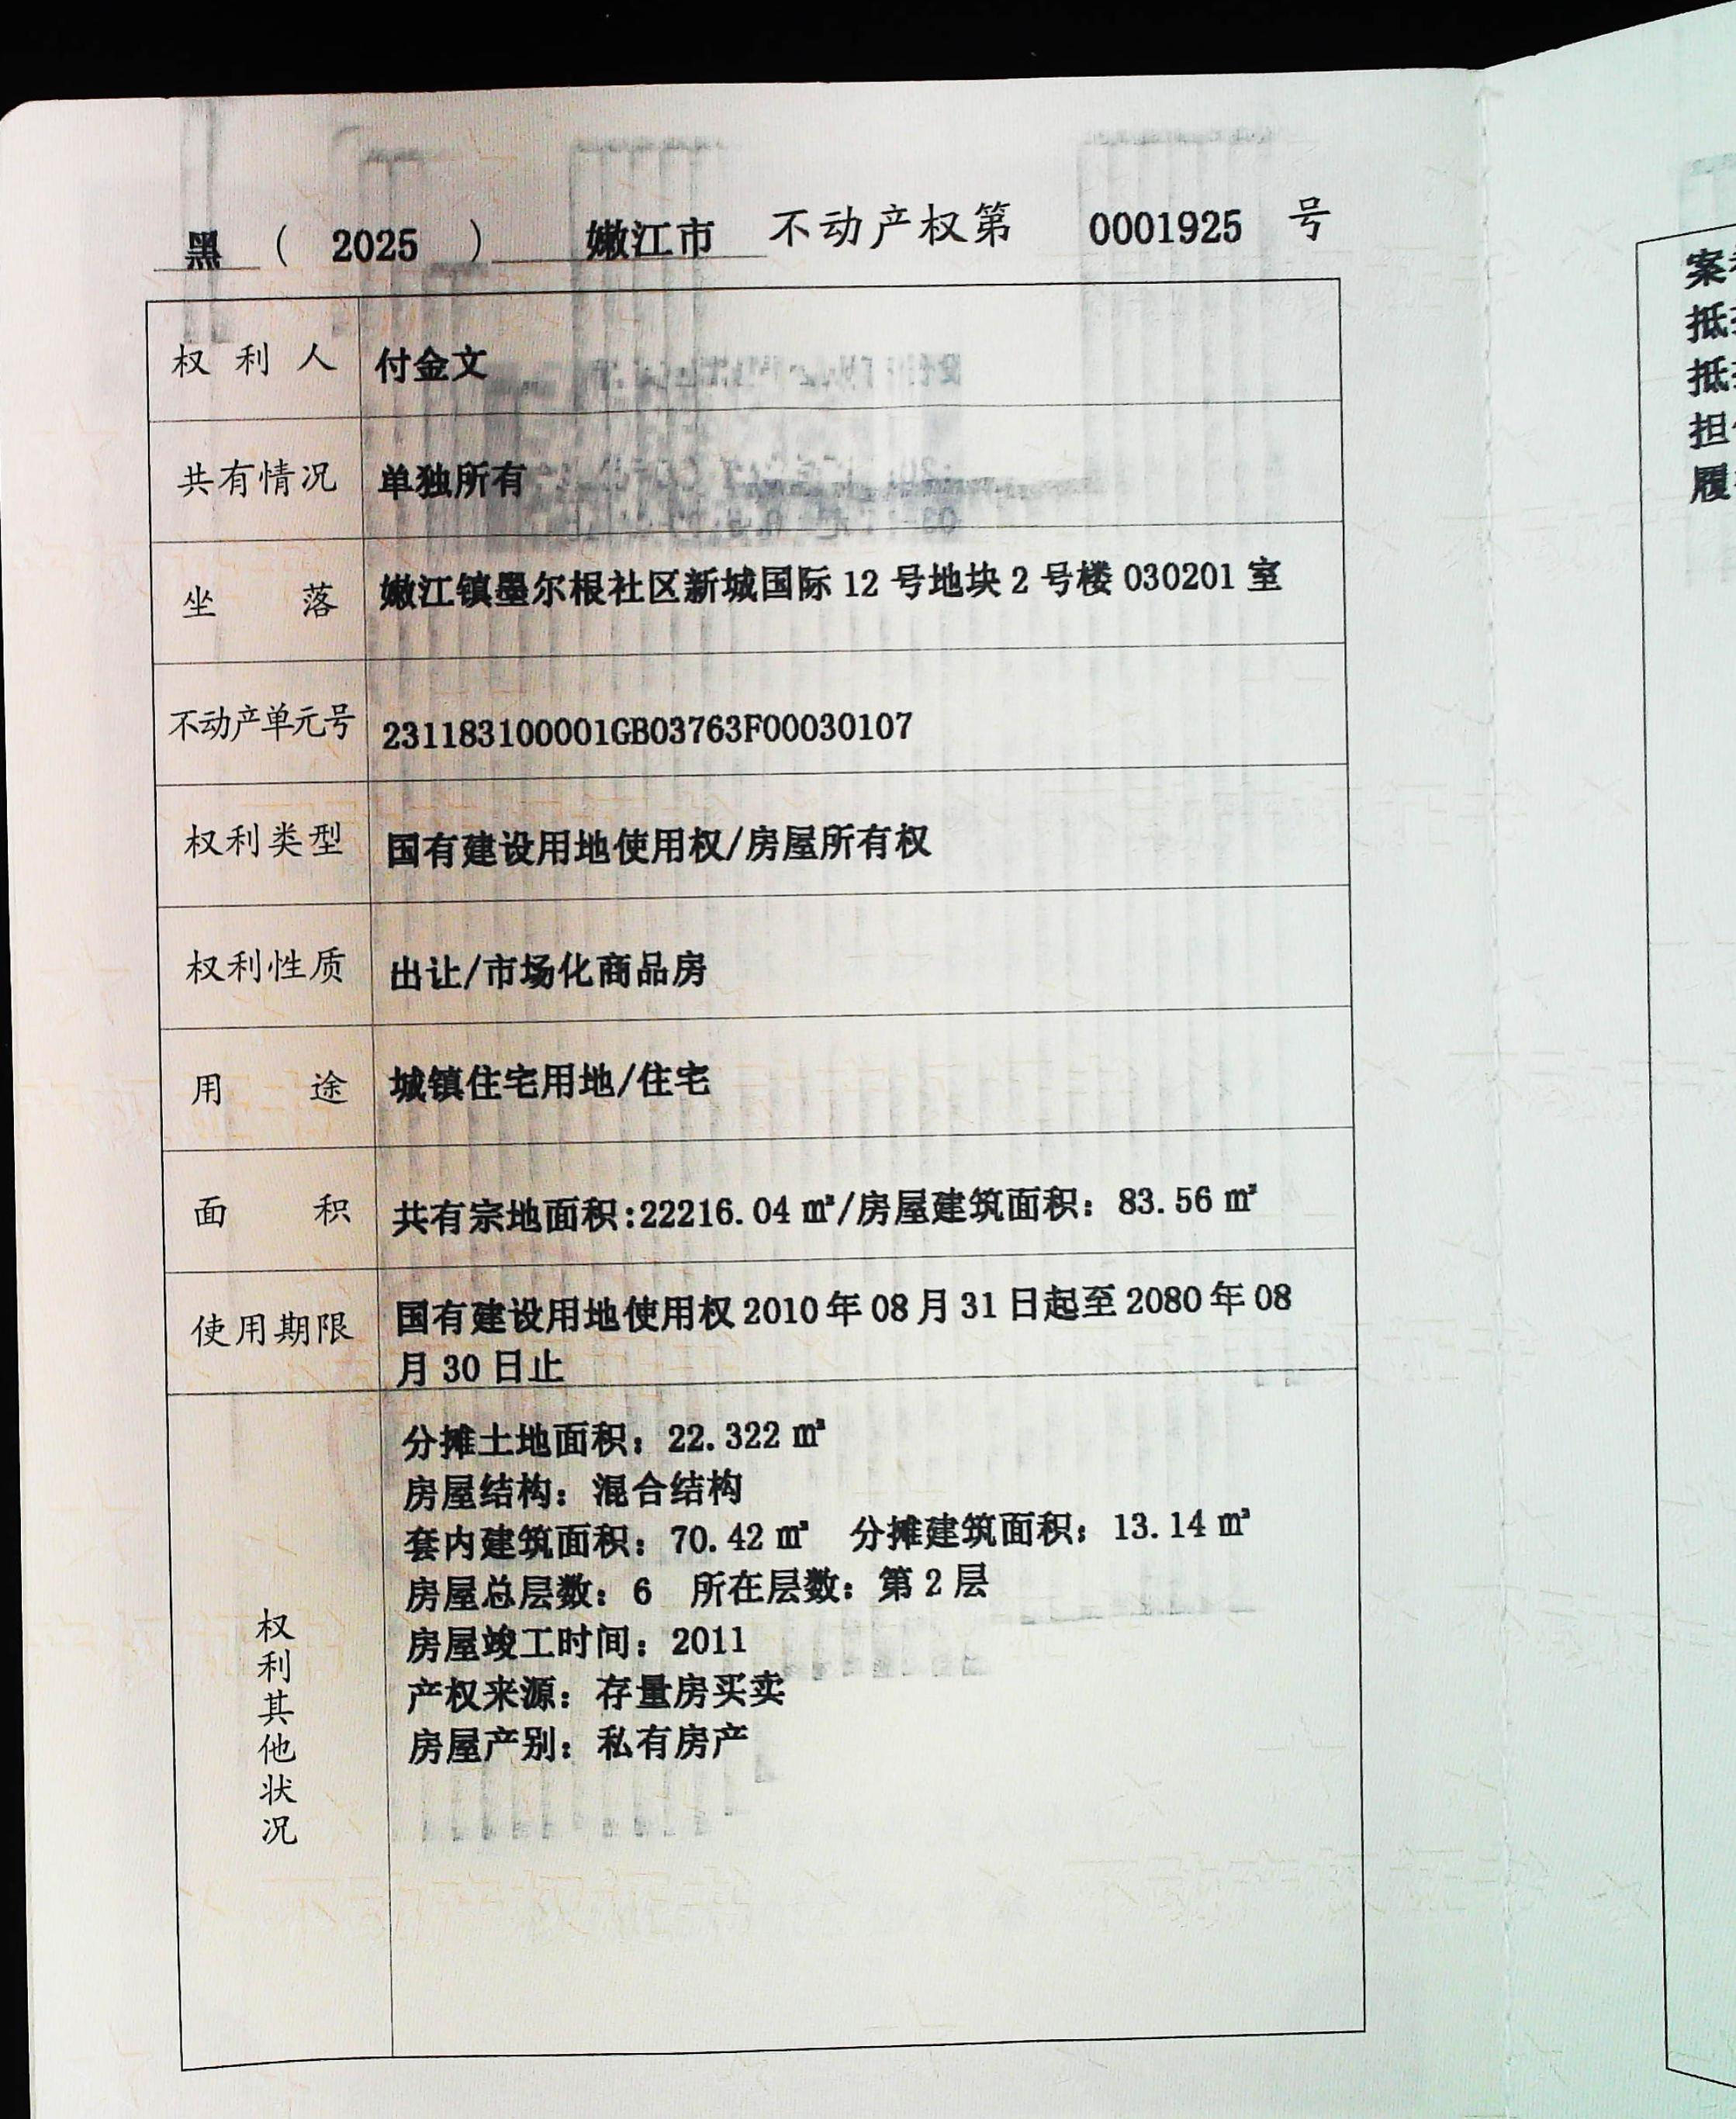 黑 ( 2025 ) 嫩江市 不动产权第 0001925 号
权利人 付金文
共有情况 单独所有
坐落 嫩江镇墨尔根社区新城国际 12 号地块 2 号楼 030201 室
不动产单元号 231183100001GB03763F00030107
权利类型 国有建设用地使用权/房屋所有权
权利性质 出让/市场化商品房
用途 城镇住宅用地/住宅
面积 共有宗地面积:22216.04 ㎡/房屋建筑面积：83.56 ㎡
使用期限 国有建设用地使用权 2010 年 08 月 31 日起至 2080 年 08
月 30 日止
权利其他状况
分摊土地面积：22.322 ㎡
房屋结构：混合结构
套内建筑面积：70.42 ㎡ 分摊建筑面积：13.14 ㎡
房屋总层数：6 所在层数：第 2 层
房屋竣工时间：2011
产权来源：存量房买卖
房屋产别：私有房产
案
抵
抵
担
履